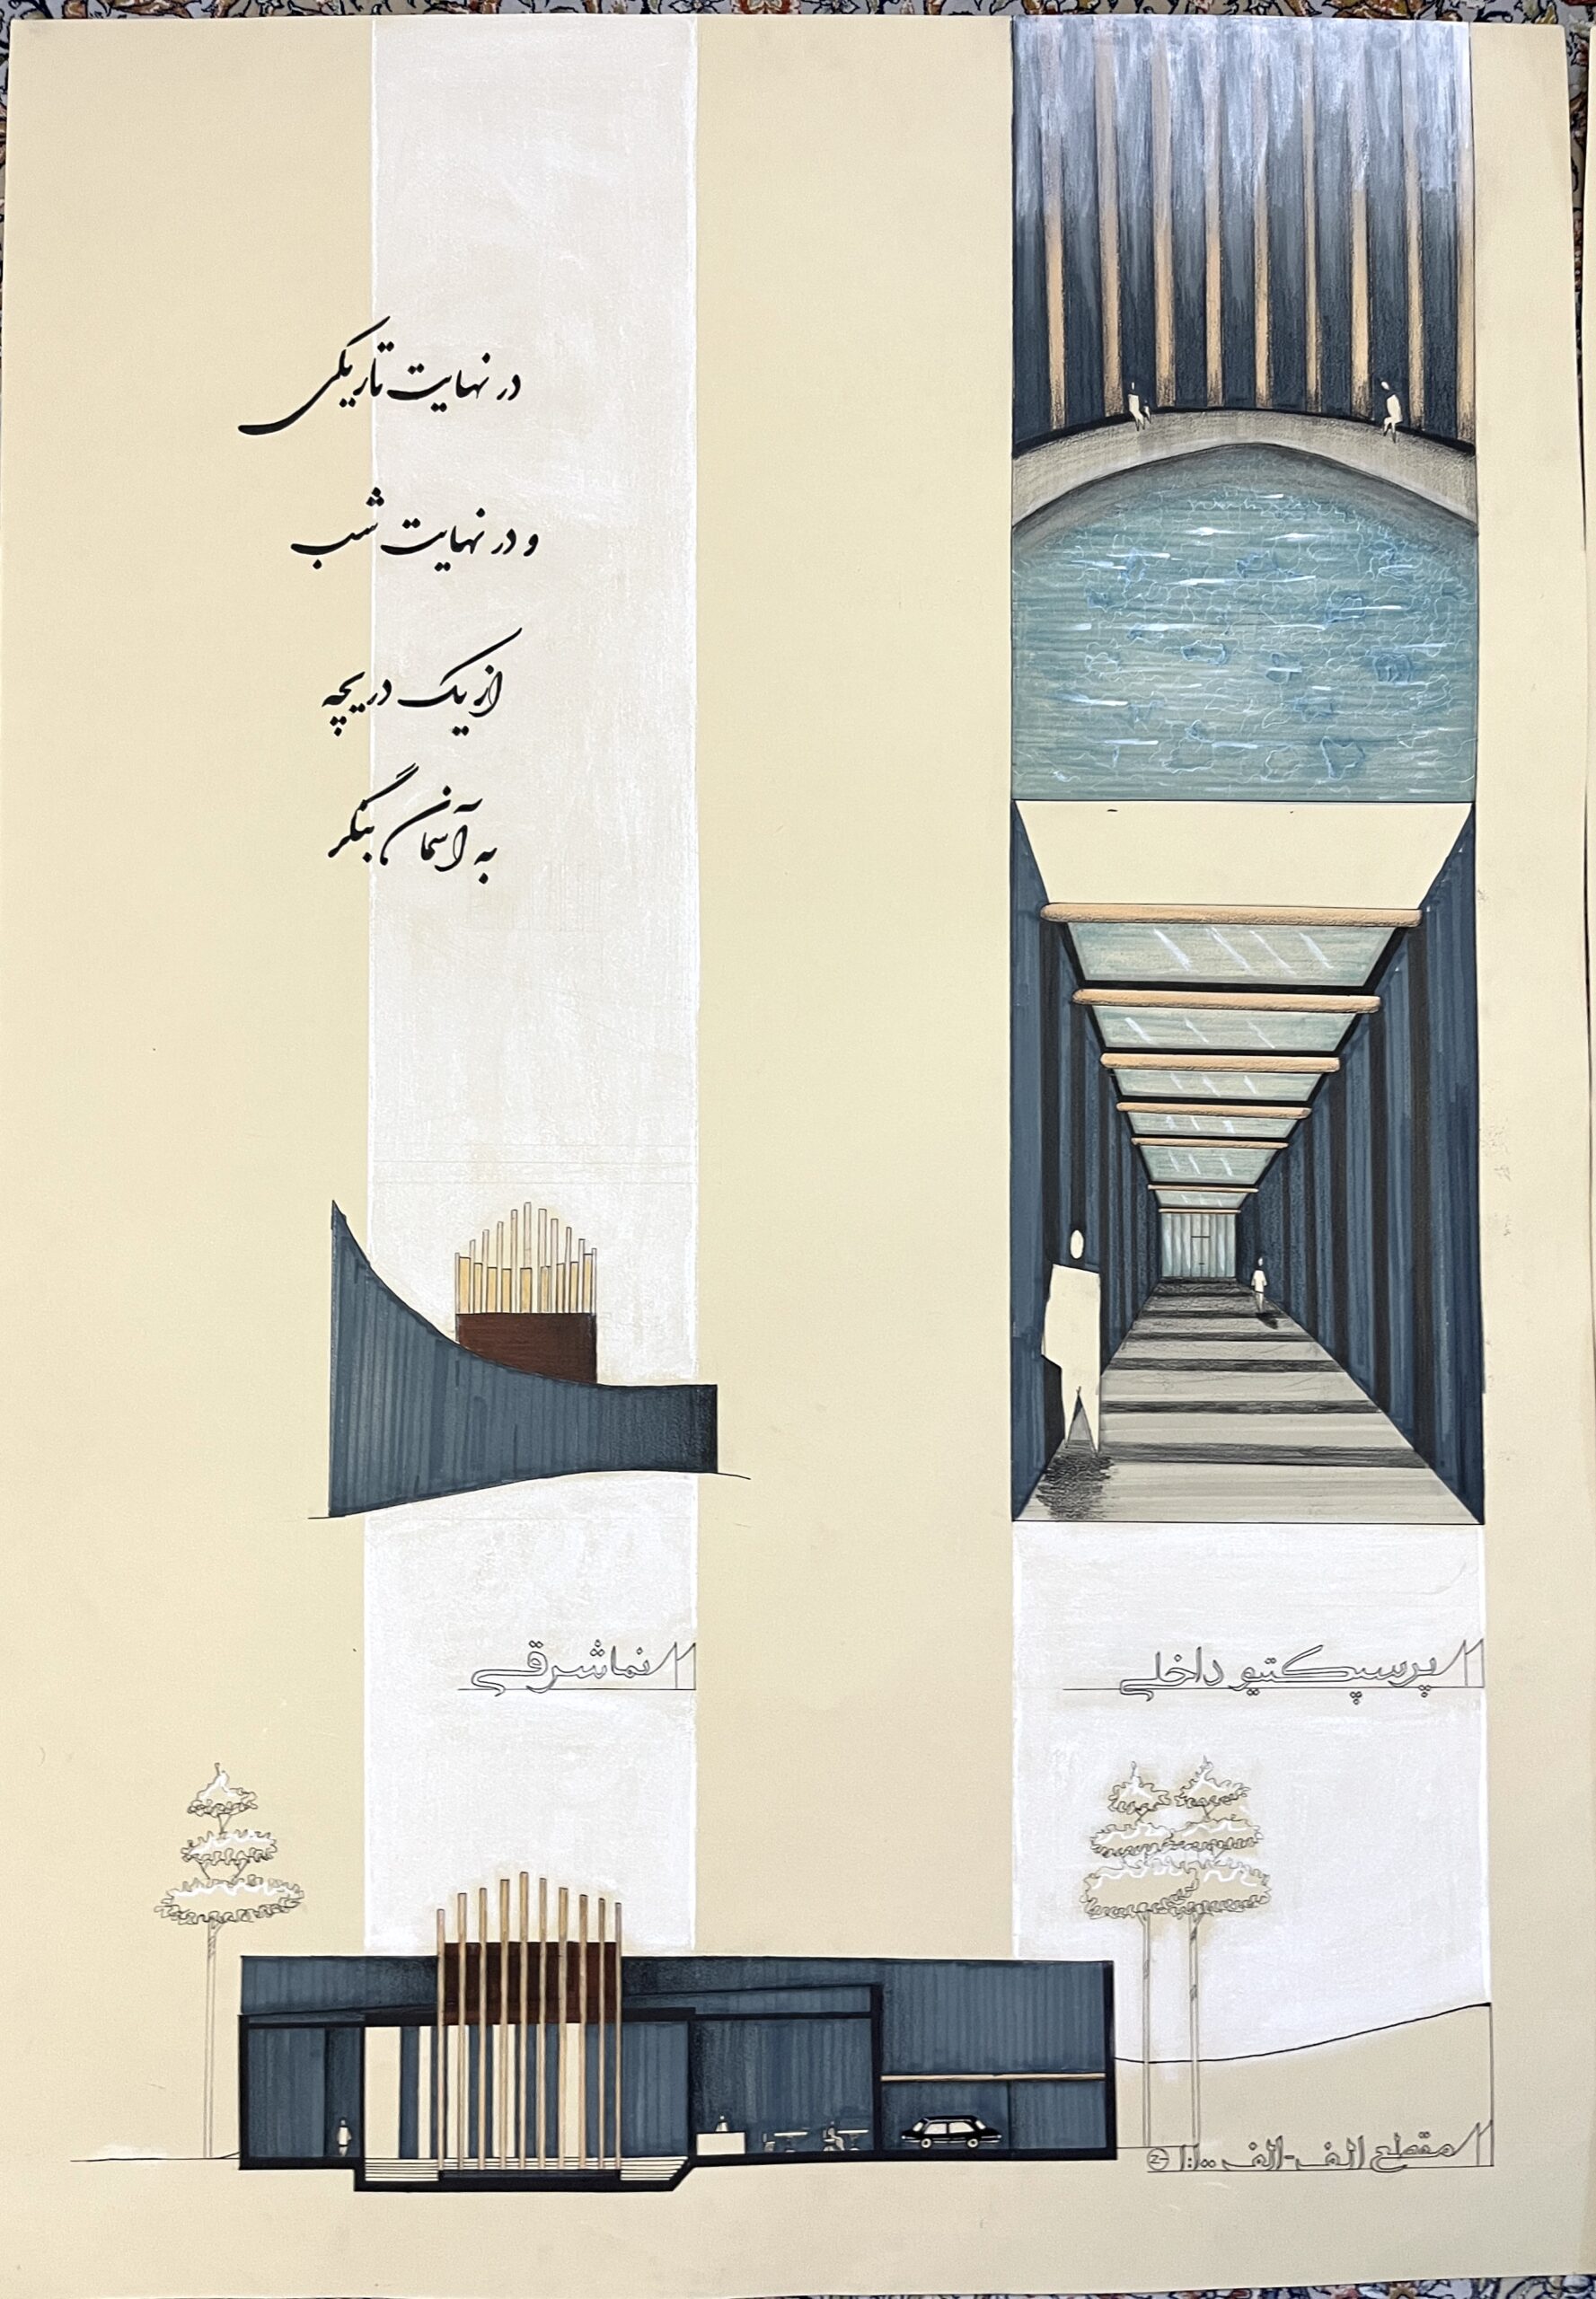 در نهایت تاریکی
و در نهایت شب
از یک دریچه
به آسمان بنگر
نما شرقی
پرسپکتیو داخلی
مقطع الف-الف ۱:۱۰۰